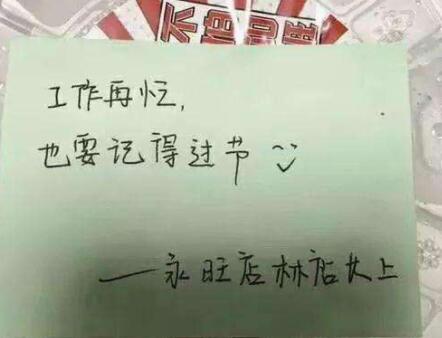 不怕
工作再忙，
也要记得过节
——永旺店林店长上